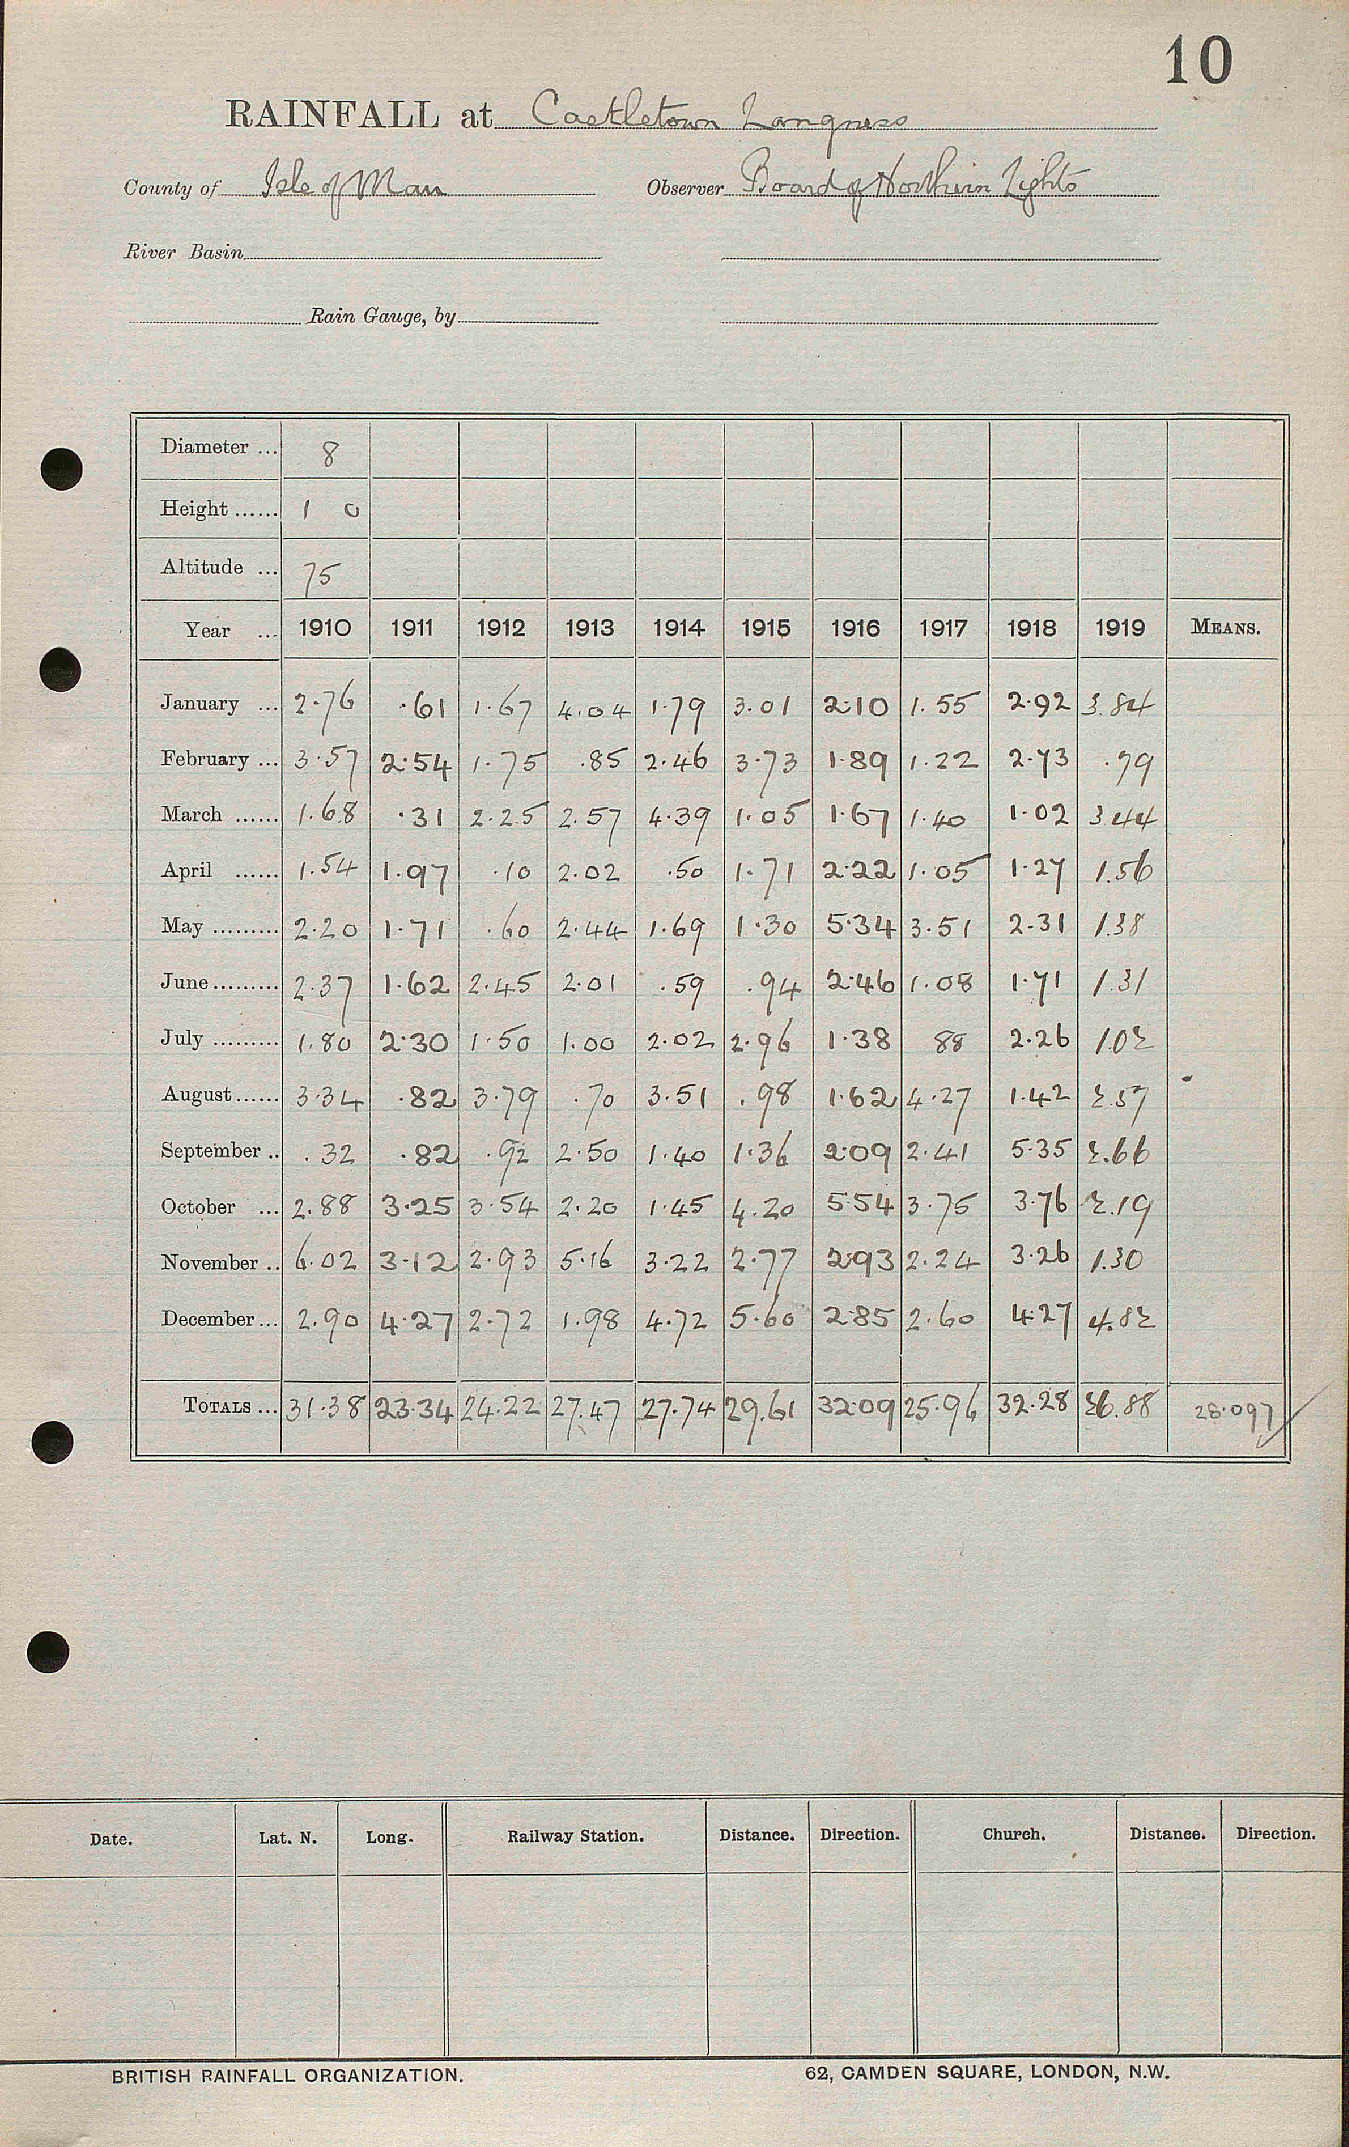 10
RAINFALL at Castletown Langness
County of Isle of Man Observer Board of Northern Lights
River Basin
Rain Gauge, by
Diameter ... 8
Height ...... 1 0
Altitude ... 75
Year ... 1910 1911 1912 1913 1914 1915 1916 1917 1918 1919 MEANS.
January ... 2.76 .61 1.67 4.04 1.79 3.01 2.10 1.55 2.92 3.84
February ... 3.57 2.54 1.75 .85 2.46 3.73 1.89 1.22 2.73 .79
March ...... 1.68 .31 2.25 2.57 4.39 1.05 1.67 1.40 1.02 3.44
April ...... 1.54 1.97 .10 2.02 .50 1.71 2.22 1.05 1.27 1.56
May ......... 2.20 1.71 .60 2.44 1.69 1.30 5.34 3.51 2.31 1.38
June ......... 2.37 1.62 2.45 2.01 .59 .94 2.46 1.08 1.71 1.31
July ......... 1.80 2.30 1.50 1.00 2.02 2.96 1.38 88 2.26 1.02
August ...... 3.34 .82 3.79 .70 3.51 .98 1.62 4.27 1.42 2.57
September .. .32 .82 .92 2.50 1.40 1.36 2.09 2.41 5.35 2.66
October ... 2.88 3.25 3.54 2.20 1.45 4.20 5.54 3.75 3.76 2.19
November .. 6.02 3.12 2.93 5.16 3.22 2.77 2.93 2.24 3.26 1.30
December ... 2.90 4.27 2.72 1.98 4.72 5.60 2.85 2.60 4.27 4.82
TOTALS ... 31.38 23.34 24.22 27.47 27.74 29.61 32.09 25.96 32.28 26.88 28.097
Date. Lat. N. Long. Railway Station. Distance. Direction. Church. Distance. Direction.
BRITISH RAINFALL ORGANIZATION. 62, CAMDEN SQUARE, LONDON, N.W.